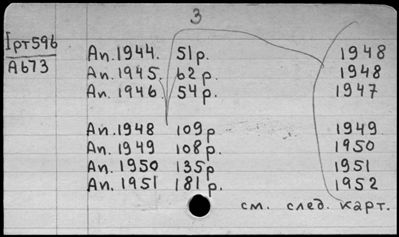 3
Iрт596
Аб73
Ап. 1944. 51 р. 1948
Ап. 1945. 62 р. 1948
Ап. 1946. 54 р. 1947
Ап. 1948 109 р 1949
Ап. 1949 108 р. 1950
Ап. 1950 135 р 1951
Ап. 1951 181 р. 1952
см. след. карт.